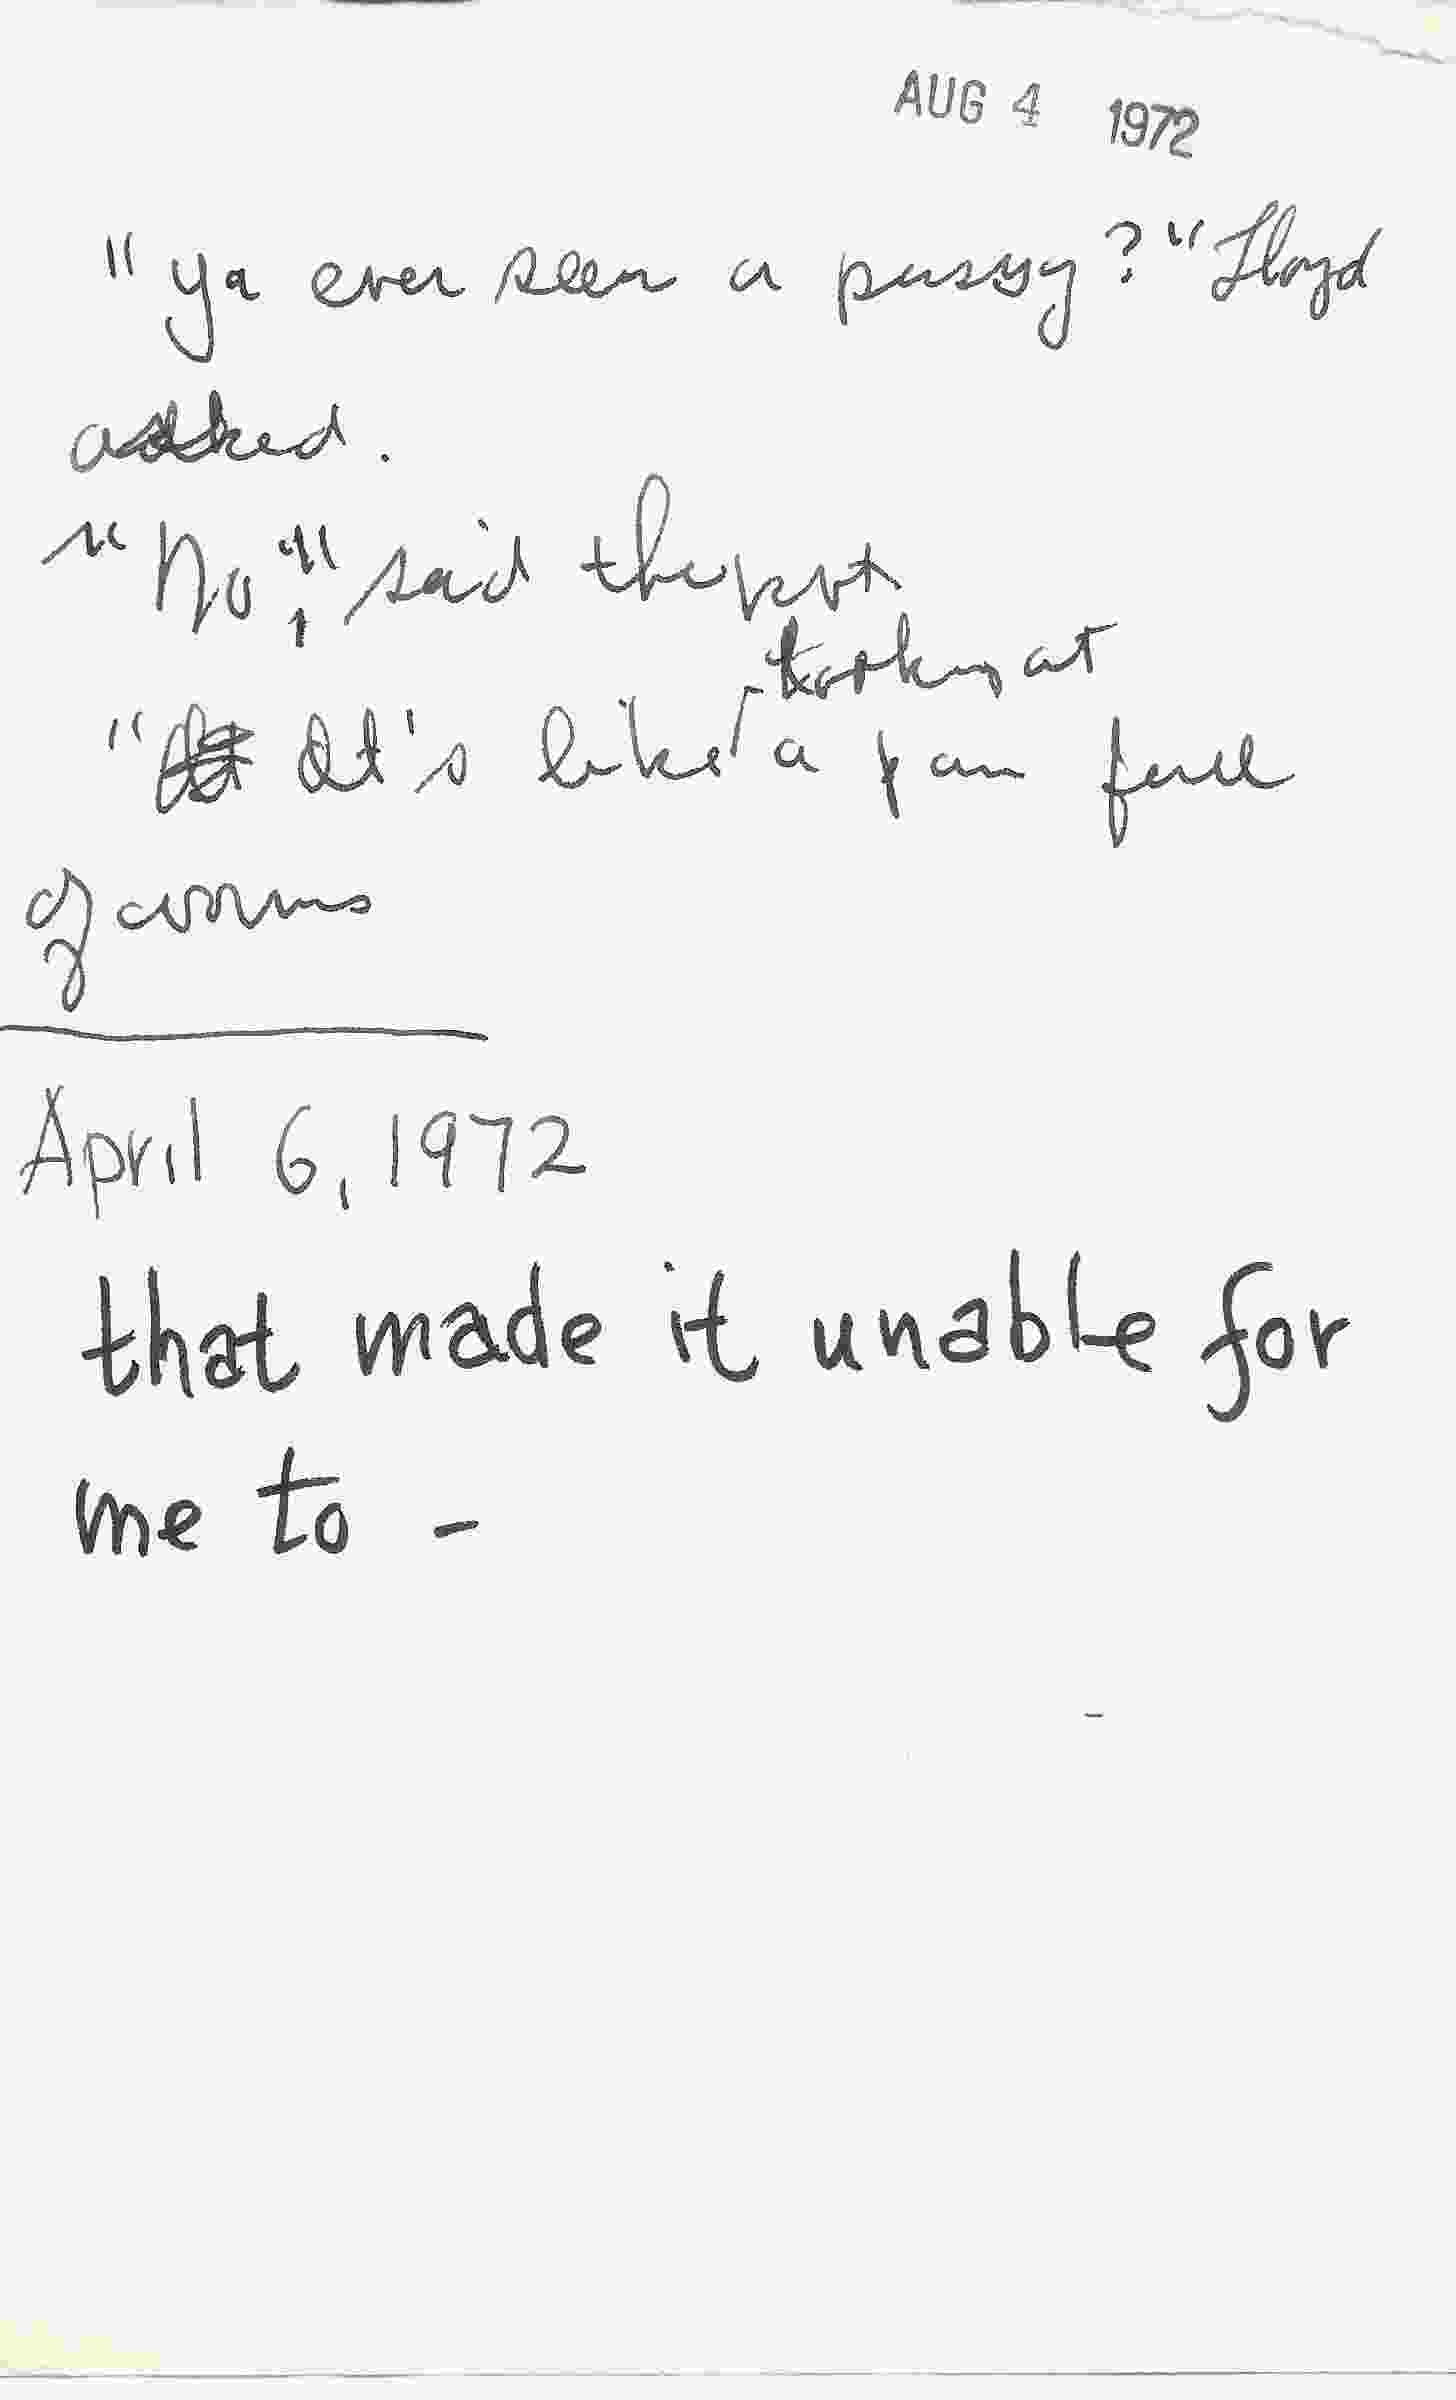 AUG 4 1972
"ya ever seen a pussy?" Lloyd
asked.
"No," said the
looking at
"It's like a pan full
of worms
April 6, 1972
that made it unable for
me to -